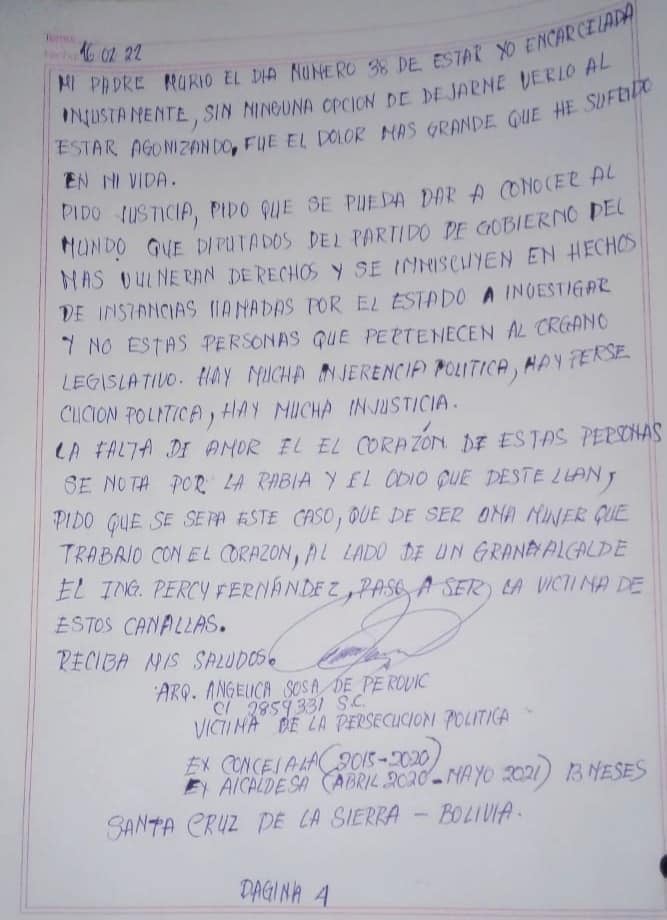 16 02 22
MI PADRE MURIO EL DIA NUMERO 38 DE ESTAR YO ENCARCELADA
INJUSTAMENTE, SIN NINGUNA OPCION DE DEJARME VERLO AL
ESTAR AGONIZANDO, FUE EL DOLOR MAS GRANDE QUE HE SUFRIDO
EN MI VIDA.
PIDO JUSTICIA, PIDO QUE SE PUEDA DAR A CONOCER AL
MUNDO QUE DIPUTADOS DEL PARTIDO DE GOBIERNO DEL
MAS VULNERAN DERECHOS Y SE INMISCUYEN EN HECHOS
DE INSTANCIAS LLAMADAS POR EL ESTADO A INVESTIGAR
Y NO ESTAS PERSONAS QUE PERTENECEN AL ORGANO
LEGISLATIVO. HAY MUCHA INJERENCIA POLITICA, HAY PERSE
CUCION POLITICA, HAY MUCHA INJUSTICIA.
LA FALTA DE AMOR EL EL CORAZÓN DE ESTAS PERSONAS
SE NOTA POR LA RABIA Y EL ODIO QUE DESTELLAN,
PIDO QUE SE SEPA ESTE CASO, QUE DE SER UNA MUJER QUE
TRABAJO CON EL CORAZON, AL LADO DE UN GRAN ALCALDE
EL ING. PERCY FERNÁNDEZ, PASO A SER LA VICTIMA DE
ESTOS CANALLAS.
RECIBA MIS SALUDOS.
ARQ. ANGELICA SOSA DE PEROVIC
CI 2859331 S.C.
VICTIMA DE LA PERSECUCION POLITICA
EX CONCEJALA (2015-2020)
EX ALCALDESA (ABRIL 2020 - MAYO 2021) 13 MESES
SANTA CRUZ DE LA SIERRA - BOLIVIA.
PAGINA 4